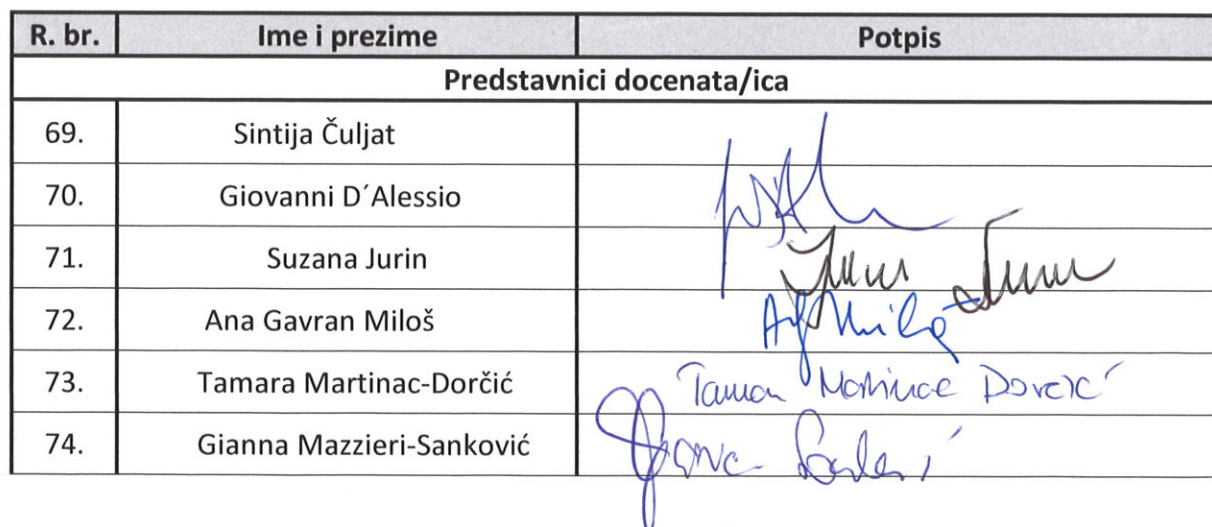 R. br. Ime i prezime Potpis
Predstavnici docenata/ica
69. Sintija Čuljat
70. Giovanni D´Alessio
71. Suzana Jurin
72. Ana Gavran Miloš
73. Tamara Martinac-Dorčić
74. Gianna Mazzieri-Sanković